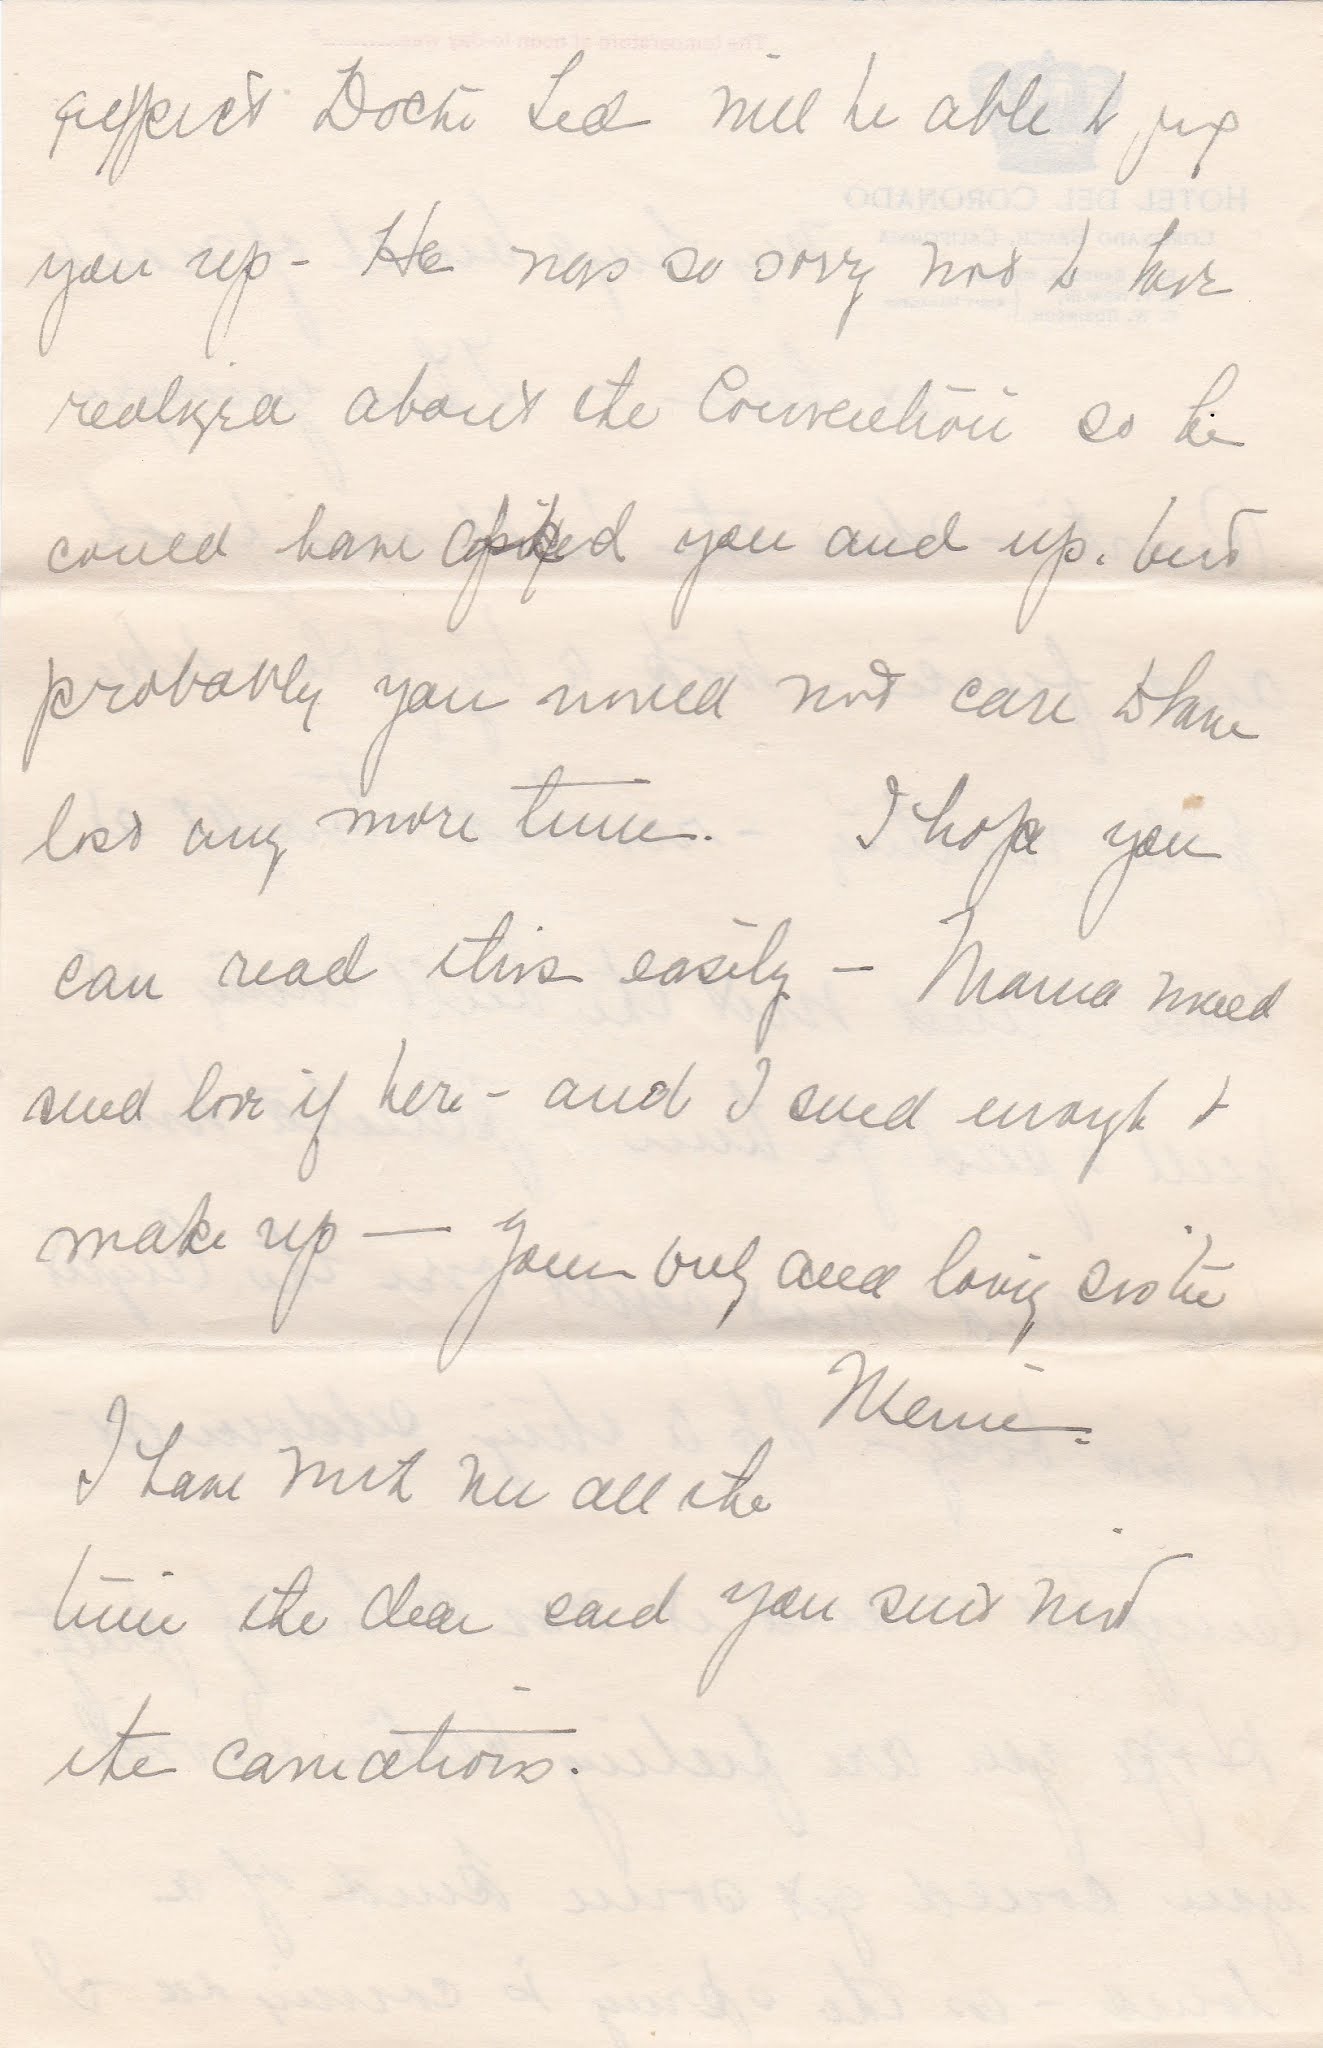 expect Doctor Ted will be able to fix
you up - He was so sorry not to have
realized about the Convention so he
could have fixed you and up. but
probably you would not care to have
lost any more time. I hope you
can read this easily - Mama would
send love if here - and I send enough to
make up — Your only and loving sister
I have with me all the
time the dear said you sent
the carnations.
HOTEL DEL CORONADO
CORONADO BEACH, CALIFORNIA